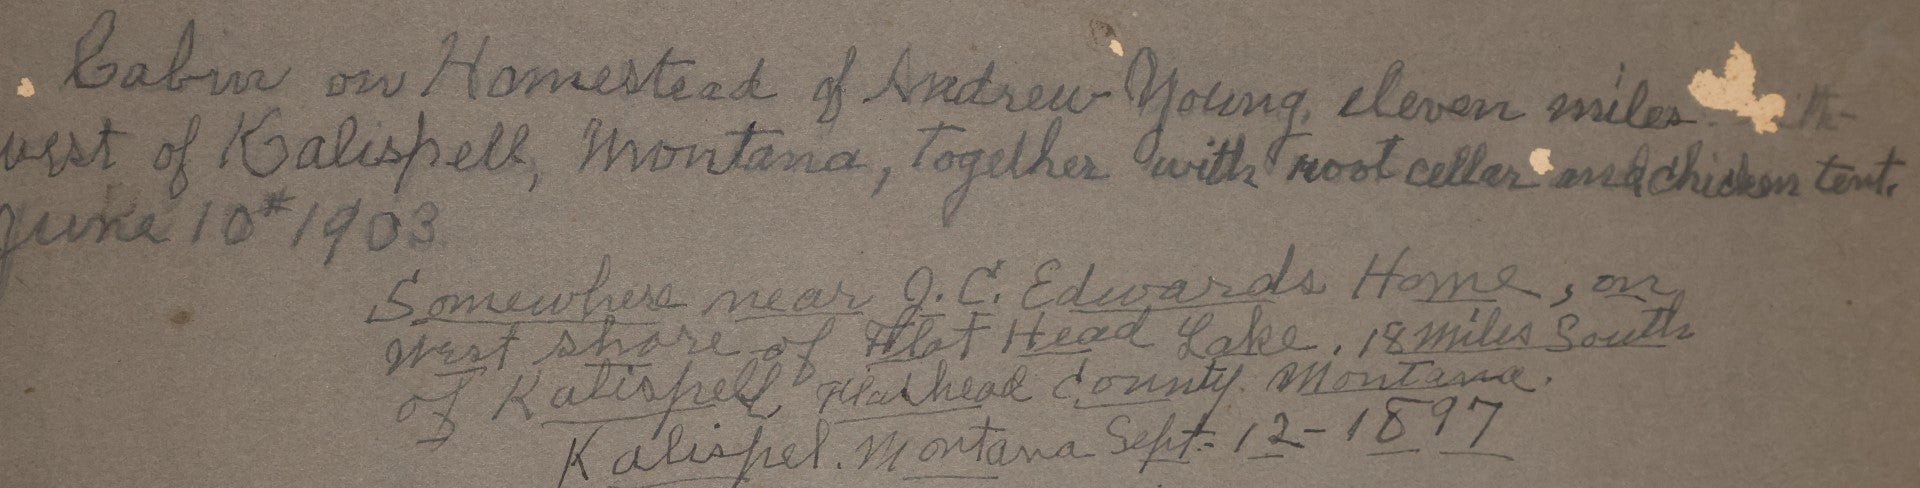 Cabin on Homestead of Andrew Young, eleven miles
west of Kalispell, Montana, together with root cellar and chicken tent.
June 10th 1903
Somewhere near J. C. Edwards Home, on
West shore of Flat Head Lake, 18 miles South
of Kalispell, Flathead County. Montana.
Kalispel. Montana Sept. 12 - 1897